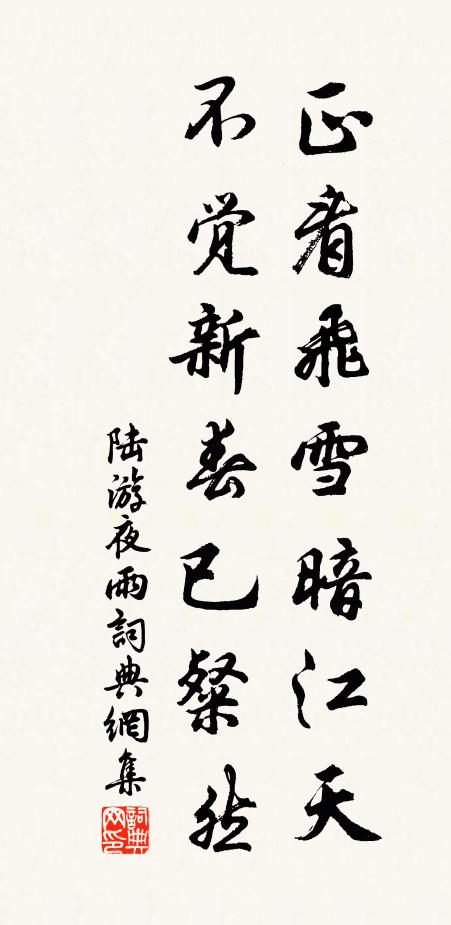 正看飛雪暗江天
不觉新春已粲然
陆游夜雨詞典網集
詞典网印